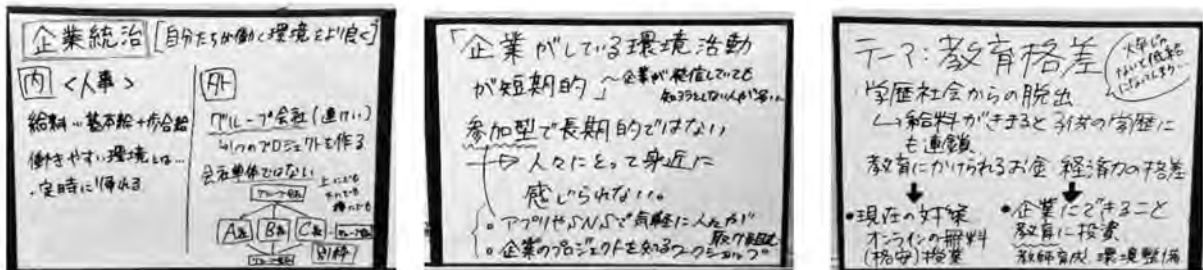 企業統治 [自分たちが働く環境をより良く]
内 <人事>
給料…基本給+歩合給
働きやすい環境とは…
・定時に帰れる
外
グループ会社(連けい)
1つのプロジェクトを作る
会社単体ではない
上にでも
下にでも
横にでも
グループ会長
A長 B長 C長
別枠
「企業がしている環境活動
が短期的」 ~企業が発信していても
知ろうとしない人が多い
参加型で長期的ではない
→人々にとって身近に
感じられない。
。アプリやSNSで気軽に人々が
取り組む
。企業のプロジェクトを知るワークショップ
テーマ:教育格差
大卒じゃ
ないと低給
になってしまう…
学歴社会からの脱出
↳給料がきまると子供の学歴に
も連鎖
教育にかけられるお金 経済力の格差
•現在の対策
オンラインの無料
(格安)授業
•企業にできること
教育に投資
教師育成 環境整備